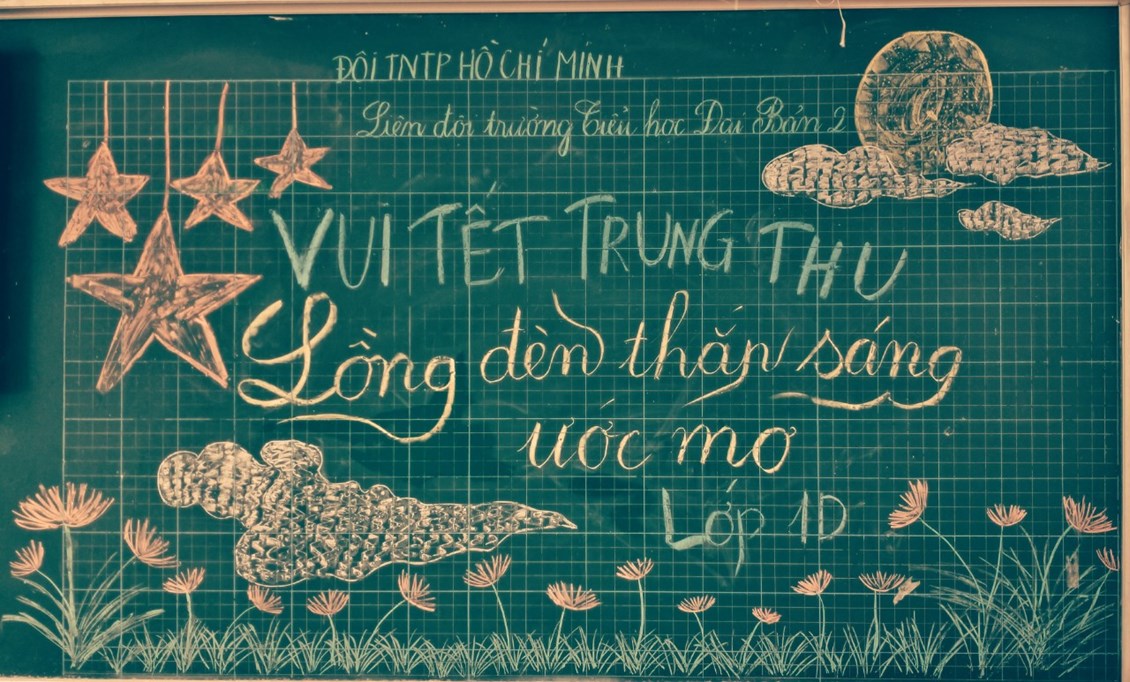 ĐỘI TNTP HỒ CHÍ MINH
Liên đội trường Tiểu học Đại Bản 2
VUI TẾT TRUNG THU
Lồng đèn thắp sáng
ước mơ
Lớp 1D